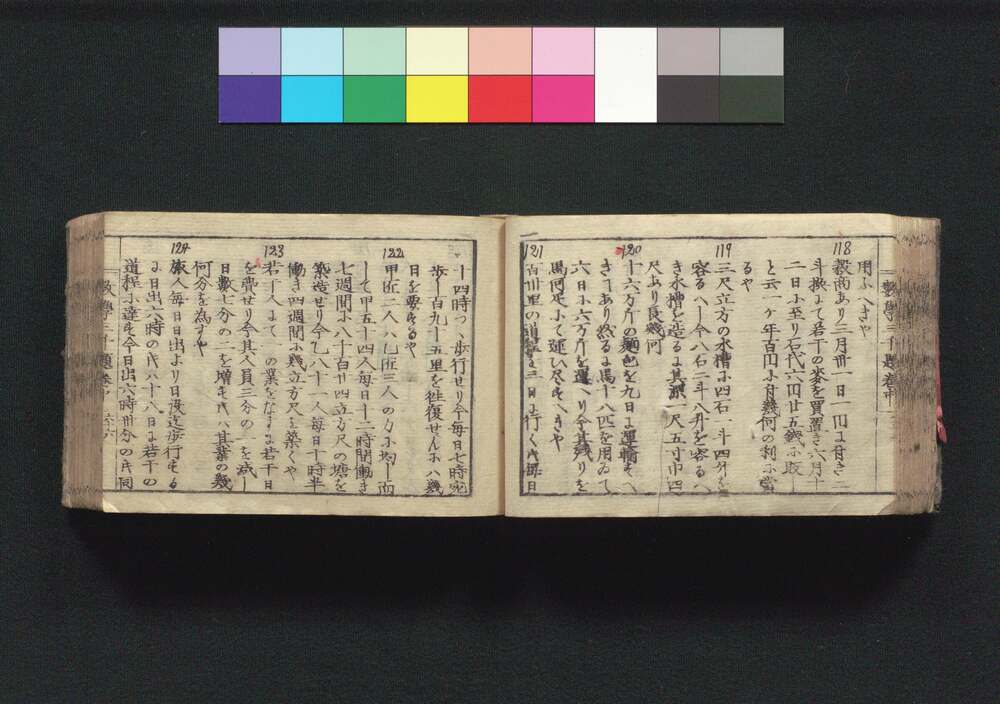 118
用ふへきや
穀商あり三月卅一日一円に付き二
斗換にて若干の麥を買置き六月十
二日に至り石代六円廿五銭に販
と云一ケ年百円に付幾何の利に當
るや
119
三尺立方の水槽に四石一斗四升を
容るへし今八石二斗八升を容るへ
き水槽を造るに其深一尺五寸巾四
尺あり長幾何
120
十六万斤の麺包を九日に運輸すへ
きことあり然るに馬十八匹を用ゐて
六日に六万斤を運へり今其残りを
馬何疋にて運ひ尽すへきや
121
百卅里の道程を三日に行く氏毎日
十四時つゝ歩行せり今毎日七時宛
歩し百九十五里を往復せんにハ幾
日を要するや
122
甲匠二人ハ乙匠三人の力に均し而
して甲五十四人毎日十二時間働き
七週間に八千百廿四立方尺の塘を
築造せり今乙八十一人毎日十時半
働き四週間に幾立方尺を築くや
123
若干人にて一の業をなすに若干日
を費せり今其人員三分の一を減し
日數七分の二を増すハ其業の幾
何分を為すや
124
旅人毎日日出より日没迄歩行する
に日出六時の氏ハ十八日に若干の
道程に達す今日出六時卅分の氏同
數學三千題卷中